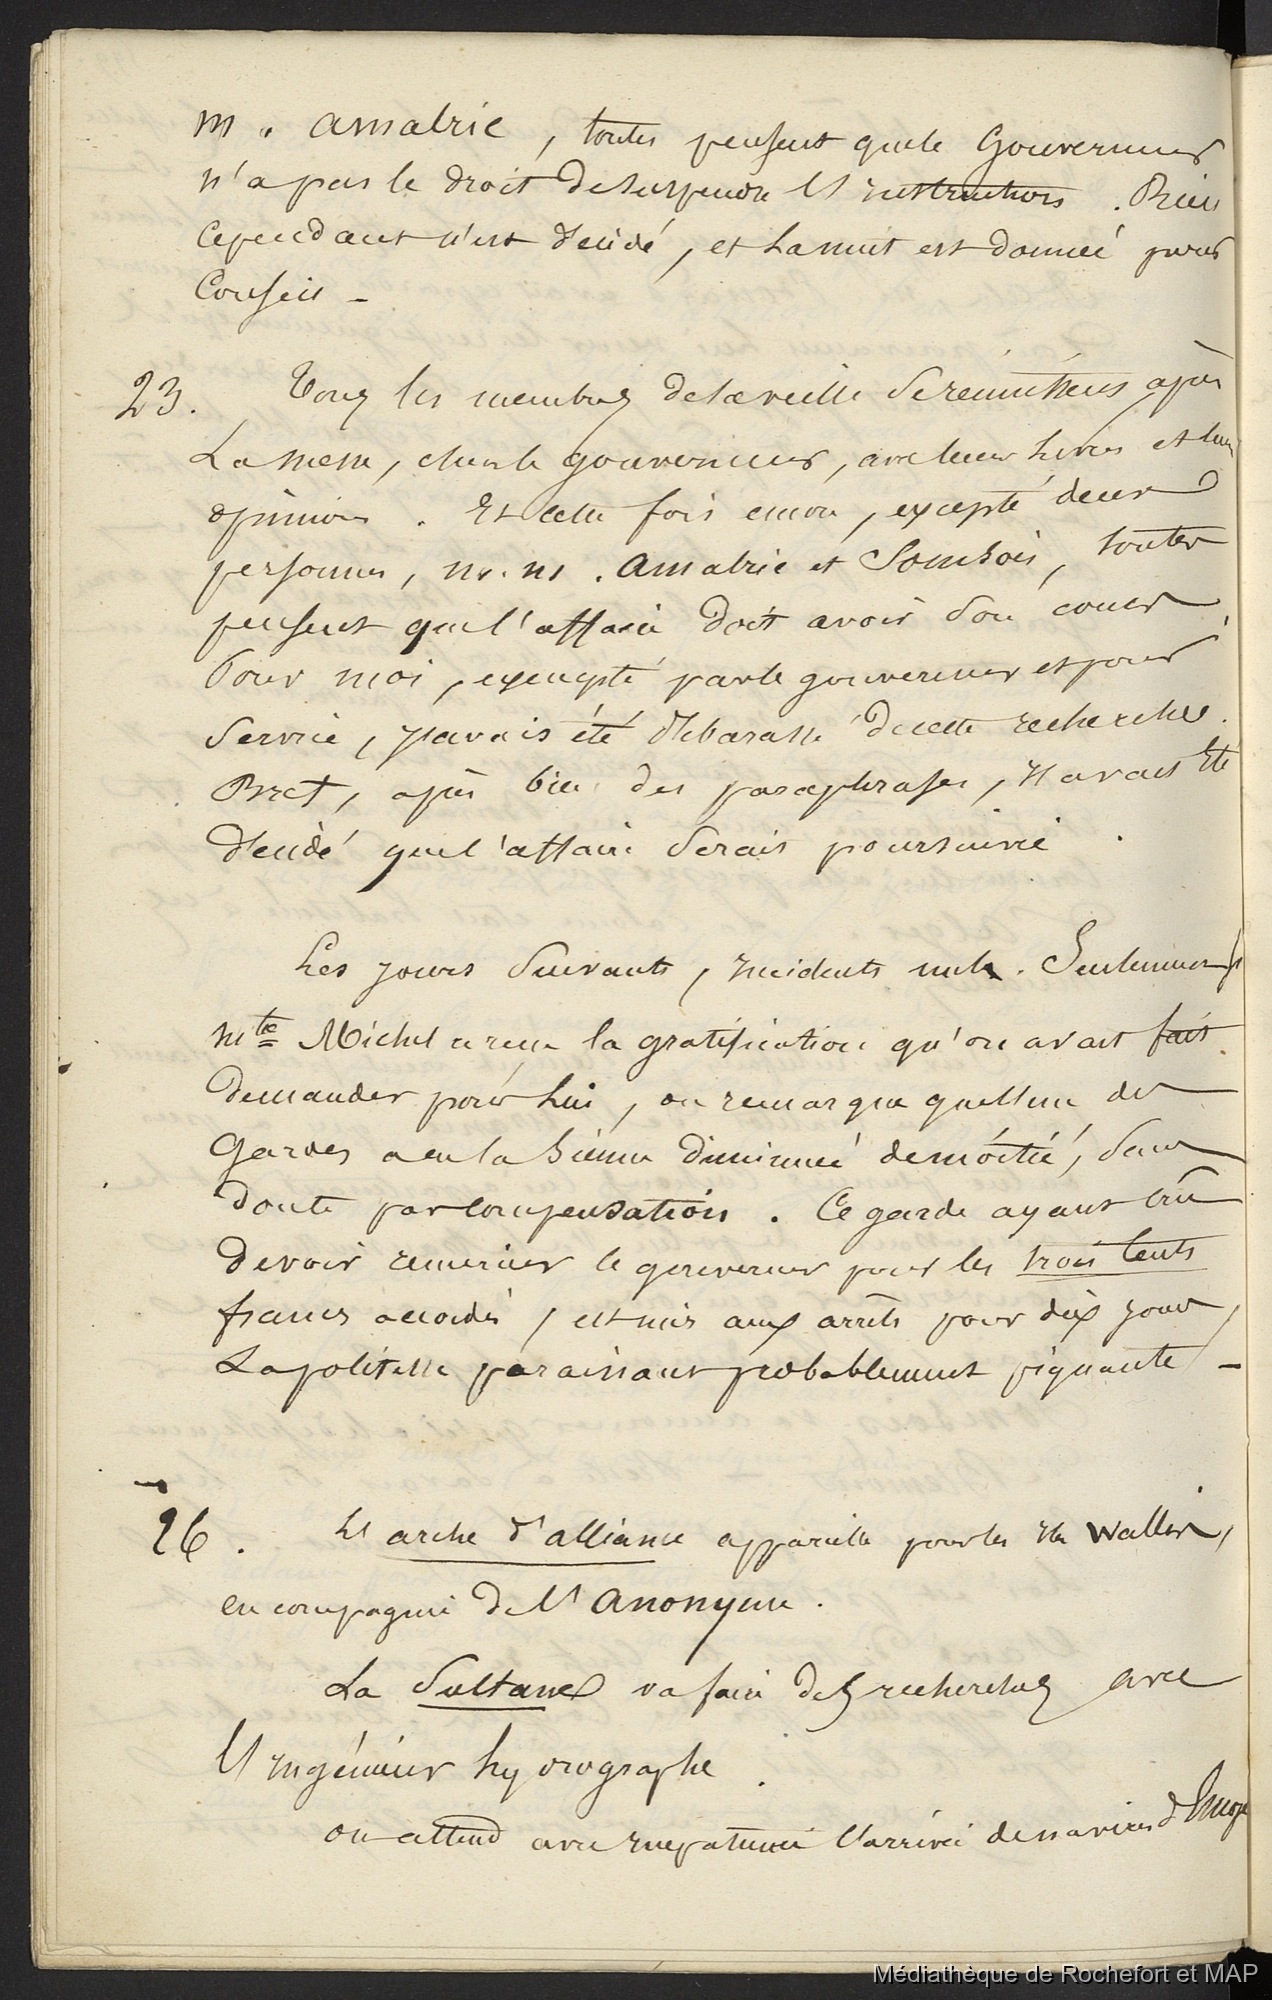 M. Amalric, toutes pensent que le Gouverneur
n'a pas le droit de suspendre l'instruction. Rien
Cependant n'est décidé, et la nuit est donnée pour
Conseil -
23. Tous les membres de la veille se réunissent, après
La messe, chez le gouverneur, avec leurs livres et leur
opinion. Et cette fois encore, excepté deux
personnes, m.m. Amalric et Sombois, toutes
pensent que l'affaire doit avoir son cours.
Pour moi, exempté par le gouverneur et pour
Service, j'avais été débarassé de cette recherche.
Bref, après bien des paraphrases, il avait été
décidé que l'affaire serait poursuivie.
Les jours suivants, incidents nuls. Seulement
Mtre Michel a reçu la gratification qu'on avait fait
demander pour lui, on remarqua que l'un des
Gardes a eu la sienne diminuée de moitié, sans
doute par compensation. Ce garde ayant crû
devoir remercier le gouverneur pour les trois cents
francs accordés, est mis aux arrêts pour dix jours,
La politesse paraissant probablement piquante -
26. L'arche d'alliance appareille pour les îles Wallis,
en compagnie de l'Anonyme.
La Sultane va faire des recherches avec
l'ingénieur hydrographe.
on attend avec impatience l'arrivée des navires d'Europe
Médiathèque de Rochefort et MAP